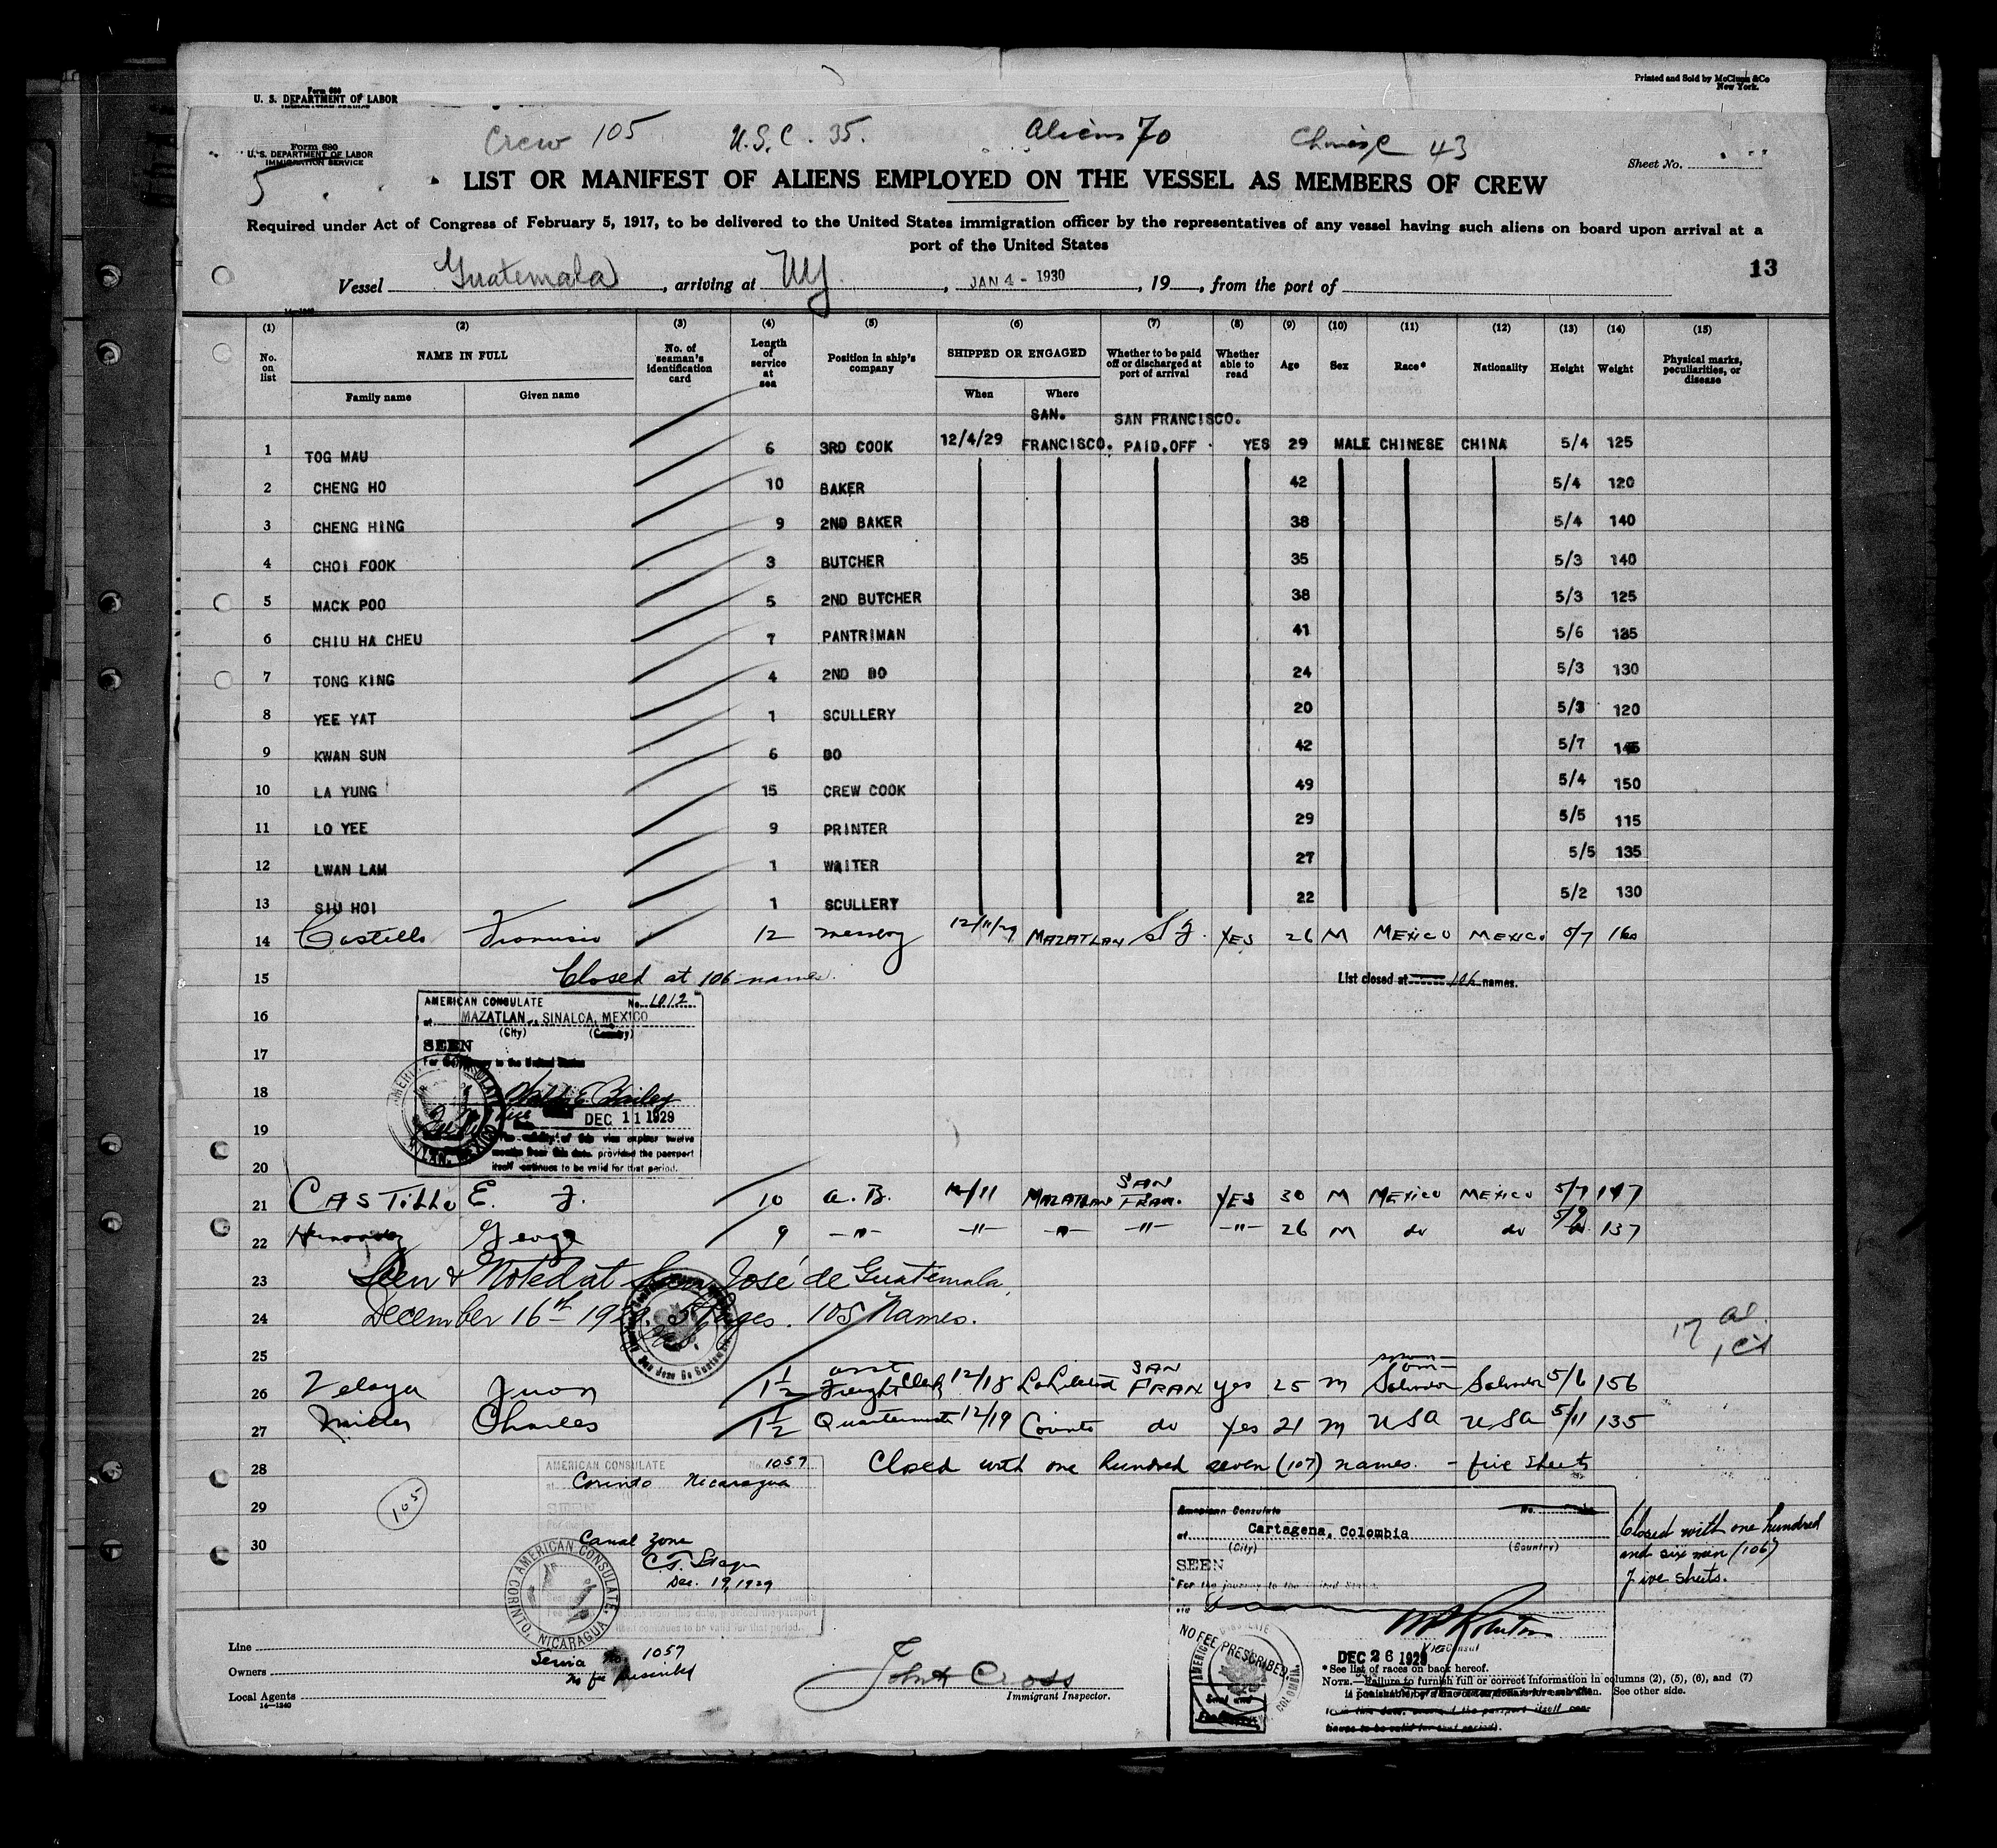 Form 680
U. S. DEPARTMENT OF LABOR
IMMIGRATION SERVICE
Printed and Sold by McClunn &Co
New York.
Crew 105 U.S.C. 35. Aliens 70 Chinese 43
Form 680
U. S. DEPARTMENT OF LABOR
IMMIGRATION SERVICE
Sheet No.
5
LIST OR MANIFEST OF ALIENS EMPLOYED ON THE VESSEL AS MEMBERS OF CREW
Required under Act of Congress of February 5, 1917, to be delivered to the United States immigration officer by the representatives of any vessel having such aliens on board upon arrival at a
port of the United States
13
Vessel Guatemala, arriving at NY, JAN 4 - 1930, 19, from the port of
(1) (2) (3) (4) (5) (6) (7) (8) (9) (10) (11) (12) (13) (14) (15)
No. on list NAME IN FULL No. of seaman's identification card Length of service at sea Position in ship's company SHIPPED OR ENGAGED Whether to be paid off or discharged at port of arrival Whether able to read Age Sex Race* Nationality Height Weight Physical marks, peculiarities, or disease
Family name Given name When Where
SAN. SAN FRANCISCO.
1 TOG MAU 6 3RD COOK 12/4/29 FRANCISCO. PAID.OFF YES 29 MALE CHINESE CHINA 5/4 125
2 CHENG HO 10 BAKER 42 5/4 120
3 CHENG HING 9 2ND BAKER 38 5/4 140
4 CHOI FOOK 3 BUTCHER 35 5/3 140
5 MACK POO 5 2ND BUTCHER 38 5/3 125
6 CHIU HA CHEU 7 PANTRIMAN 41 5/6 135
7 TONG KING 4 2ND DO 24 5/3 130
8 YEE YAT 1 SCULLERY 20 5/3 120
9 KWAN SUN 6 DO 42 5/7 145
10 LA YUNG 15 CREW COOK 49 5/4 150
11 LO YEE 9 PRINTER 29 5/5 115
12 LWAN LAM 1 WAITER 27 5/5 135
13 SIU HOI 1 SCULLERY 22 5/2 130
14 Castillo Dionisio 12 messboy 12/11/29 MAZATLAN S F. YES 26 M MEXICO MEXICO 5/7 160
15 Closed at 106 names. List closed at 106 names.
AMERICAN CONSULATE No. 1012
at MAZATLAN, SINALOA, MEXICO
(City) (Country)
SEEN
For the journey to the United States
DEC 11 1929
The validity of this visa expires twelve
months from this date, provided the passport
itself continues to be valid for that period.
16
17
18
19
20
SAN
21 CASTILLO E. J. 10 A. B. 12/11 MAZATLAN FRAN. YES 30 M MEXICO MEXICO 5/7 147
22 Hernandez George 9 -"- -"- -"- -"- -"- 26 M do do 5/9 137
23 Seen & Noted at San José de Guatemala,
24 December 16th 1929. 5 Pages. 105 Names.
17 al
1 cit
25
asst SAN
26 Zelaya Juan 1 1/2 Freight Clerk 12/18 La Libertad FRAN yes 25 m Salvador Salvador 5/6 156
27 Miller Charles 1 1/2 Quartermaster 12/19 Corinto do Yes 21 m USA USA 5/11 135
28 Closed with one hundred seven (107) names. - five sheets
29
30
AMERICAN CONSULATE No. 1057
at Corinto Nicaragua
SEEN
105
Canal Zone
Dec. 19, 1929
AMERICAN CONSULATE, CORINTO, NICARAGUA
Service No 1057
No fee prescribed
American Consulate No.
at Cartagena, Colombia
(City) (Country)
SEEN
For the journey to the United States
via
Vice Consul
DEC 26 1929
NO FEE PRESCRIBED
Closed with one hundred
and six men (106)
Five sheets.
Line
Owners
Local Agents
14—1240
John Cross
Immigrant Inspector.
* See list of races on back hereof.
NOTE.—Failure to furnish full or correct information in columns (2), (5), (6), and (7)
is punishable by a fine of ten dollars for each alien. See other side.